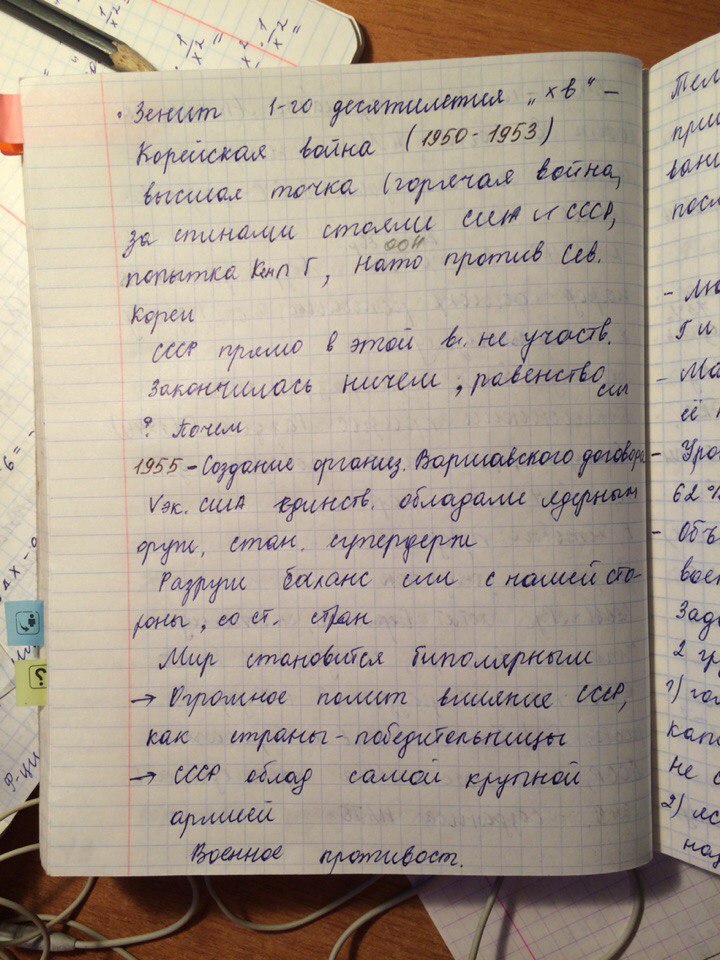 1
x²
1
x²
1
x²
· Зенит 1-го десятилетия „хв“ –
Корейская война (1950-1953)
высшая точка (горячая война,
за спинами стояли США и СССР,
ООН
попытка Г, Нато против Сев.
Кореи
СССР прямо в этой в. не участв.
Закончилась ничем, равенство
сил
? Почем
1955 – Создание организ. Варшавского договора
Vэк. США единств. обладали ядерным
оруж, стан. супердерж
Разруш баланс сил с нашей сто-
роны, со ст. стран
Мир становится биполярным
→ Огромное полит влияние СССР,
как страны-победительницы
→ СССР облад самой крупной
армией
Военное противост.
- Ма
её
- Уро
62%
- Объ
воен
Зад
2 гр
1) го
кап
не с
2)
на